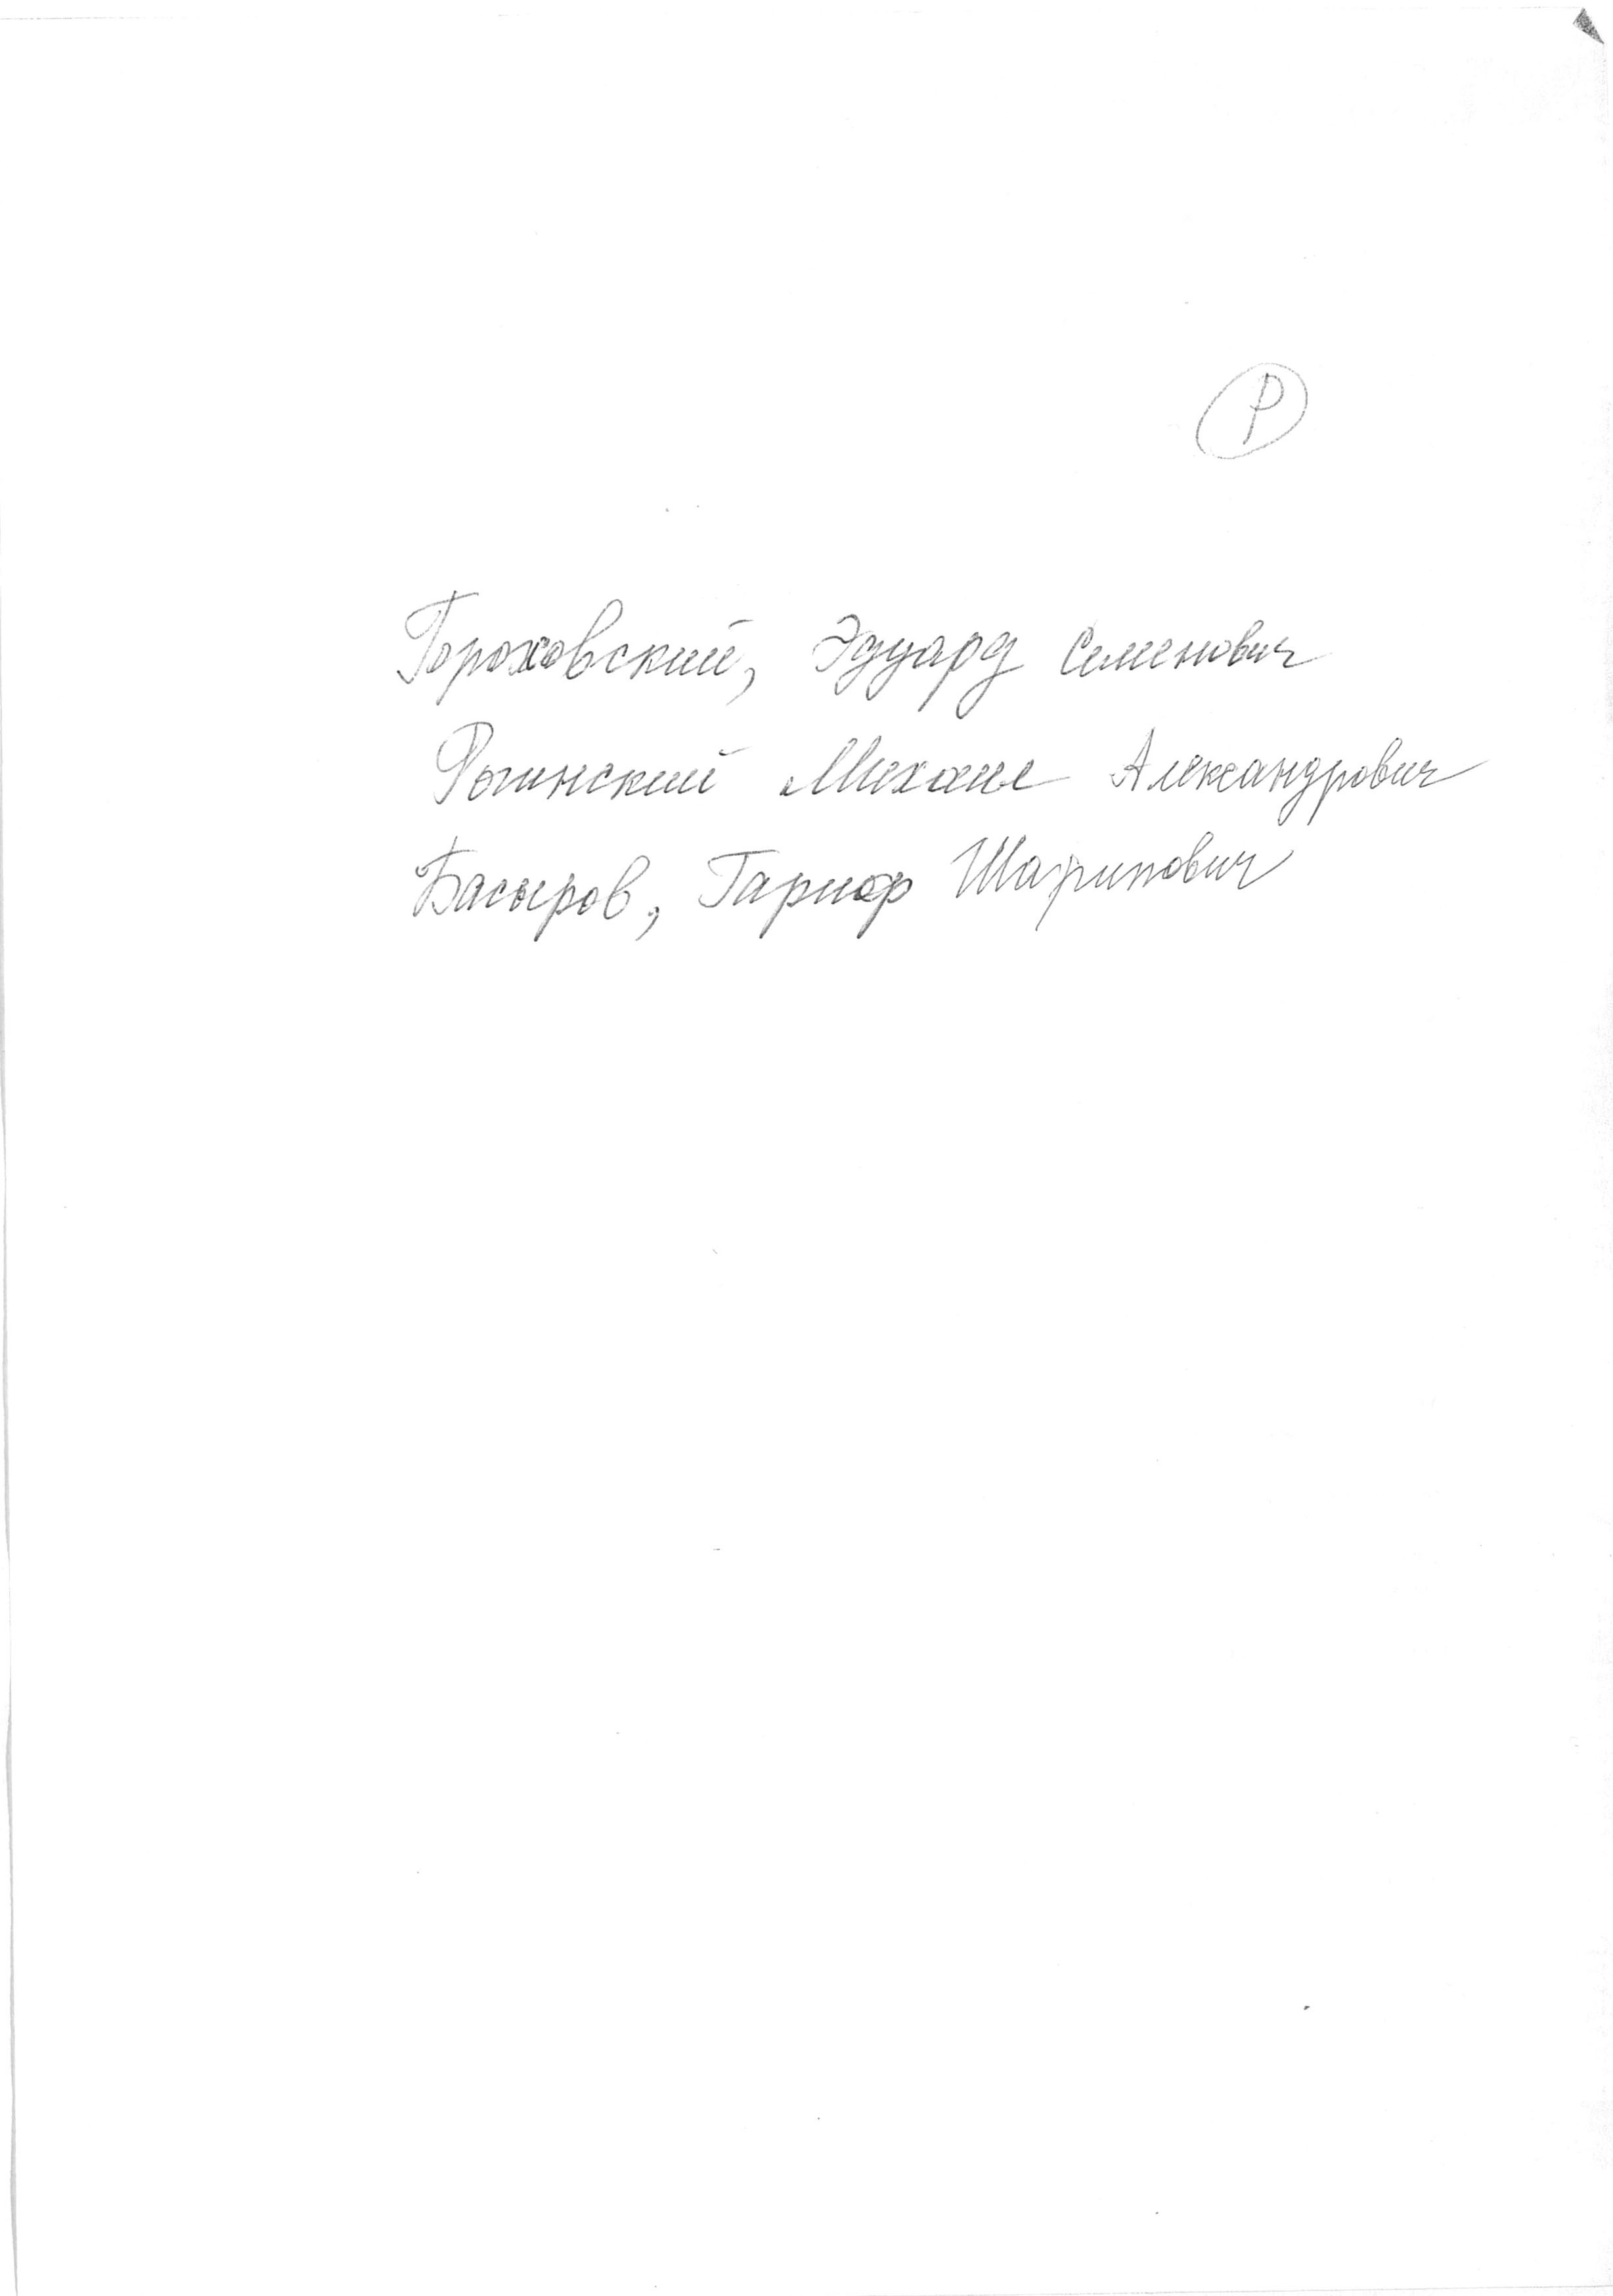 Р
Гороховский, Эдуард Семенович
Рогинский Михаил Александрович
Басыров, Гариф Шарипович